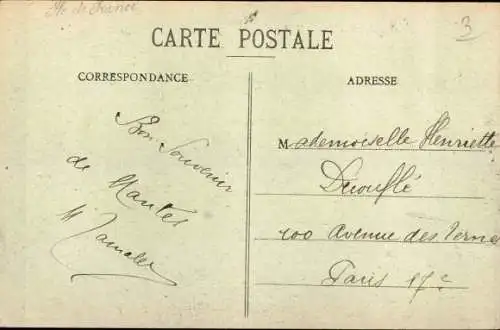 Ile de France
3
CARTE POSTALE
CORRESPONDANCE
ADRESSE
Bon Souvenir
de Nantes
Mademoiselle Henriette
100 Avenue des Ternes
Paris 17e